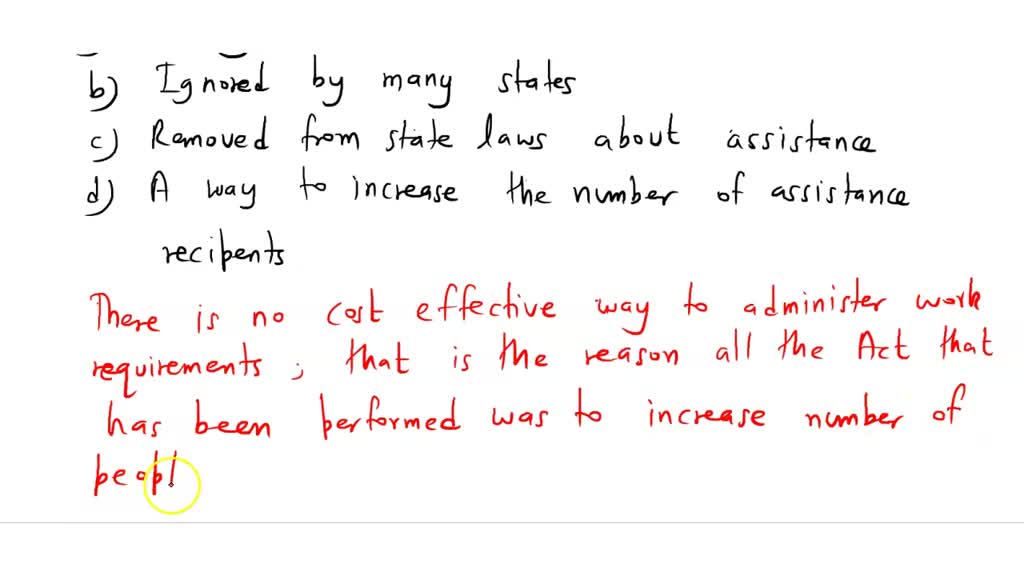 b) Ignored by many states
c) Removed from state laws about assistance
d) A way to increase the number of assistance
recipents
There is no cost effective way to administer work
requirements, that is the reason all the Act that
has been performed was to increase number of
peopl